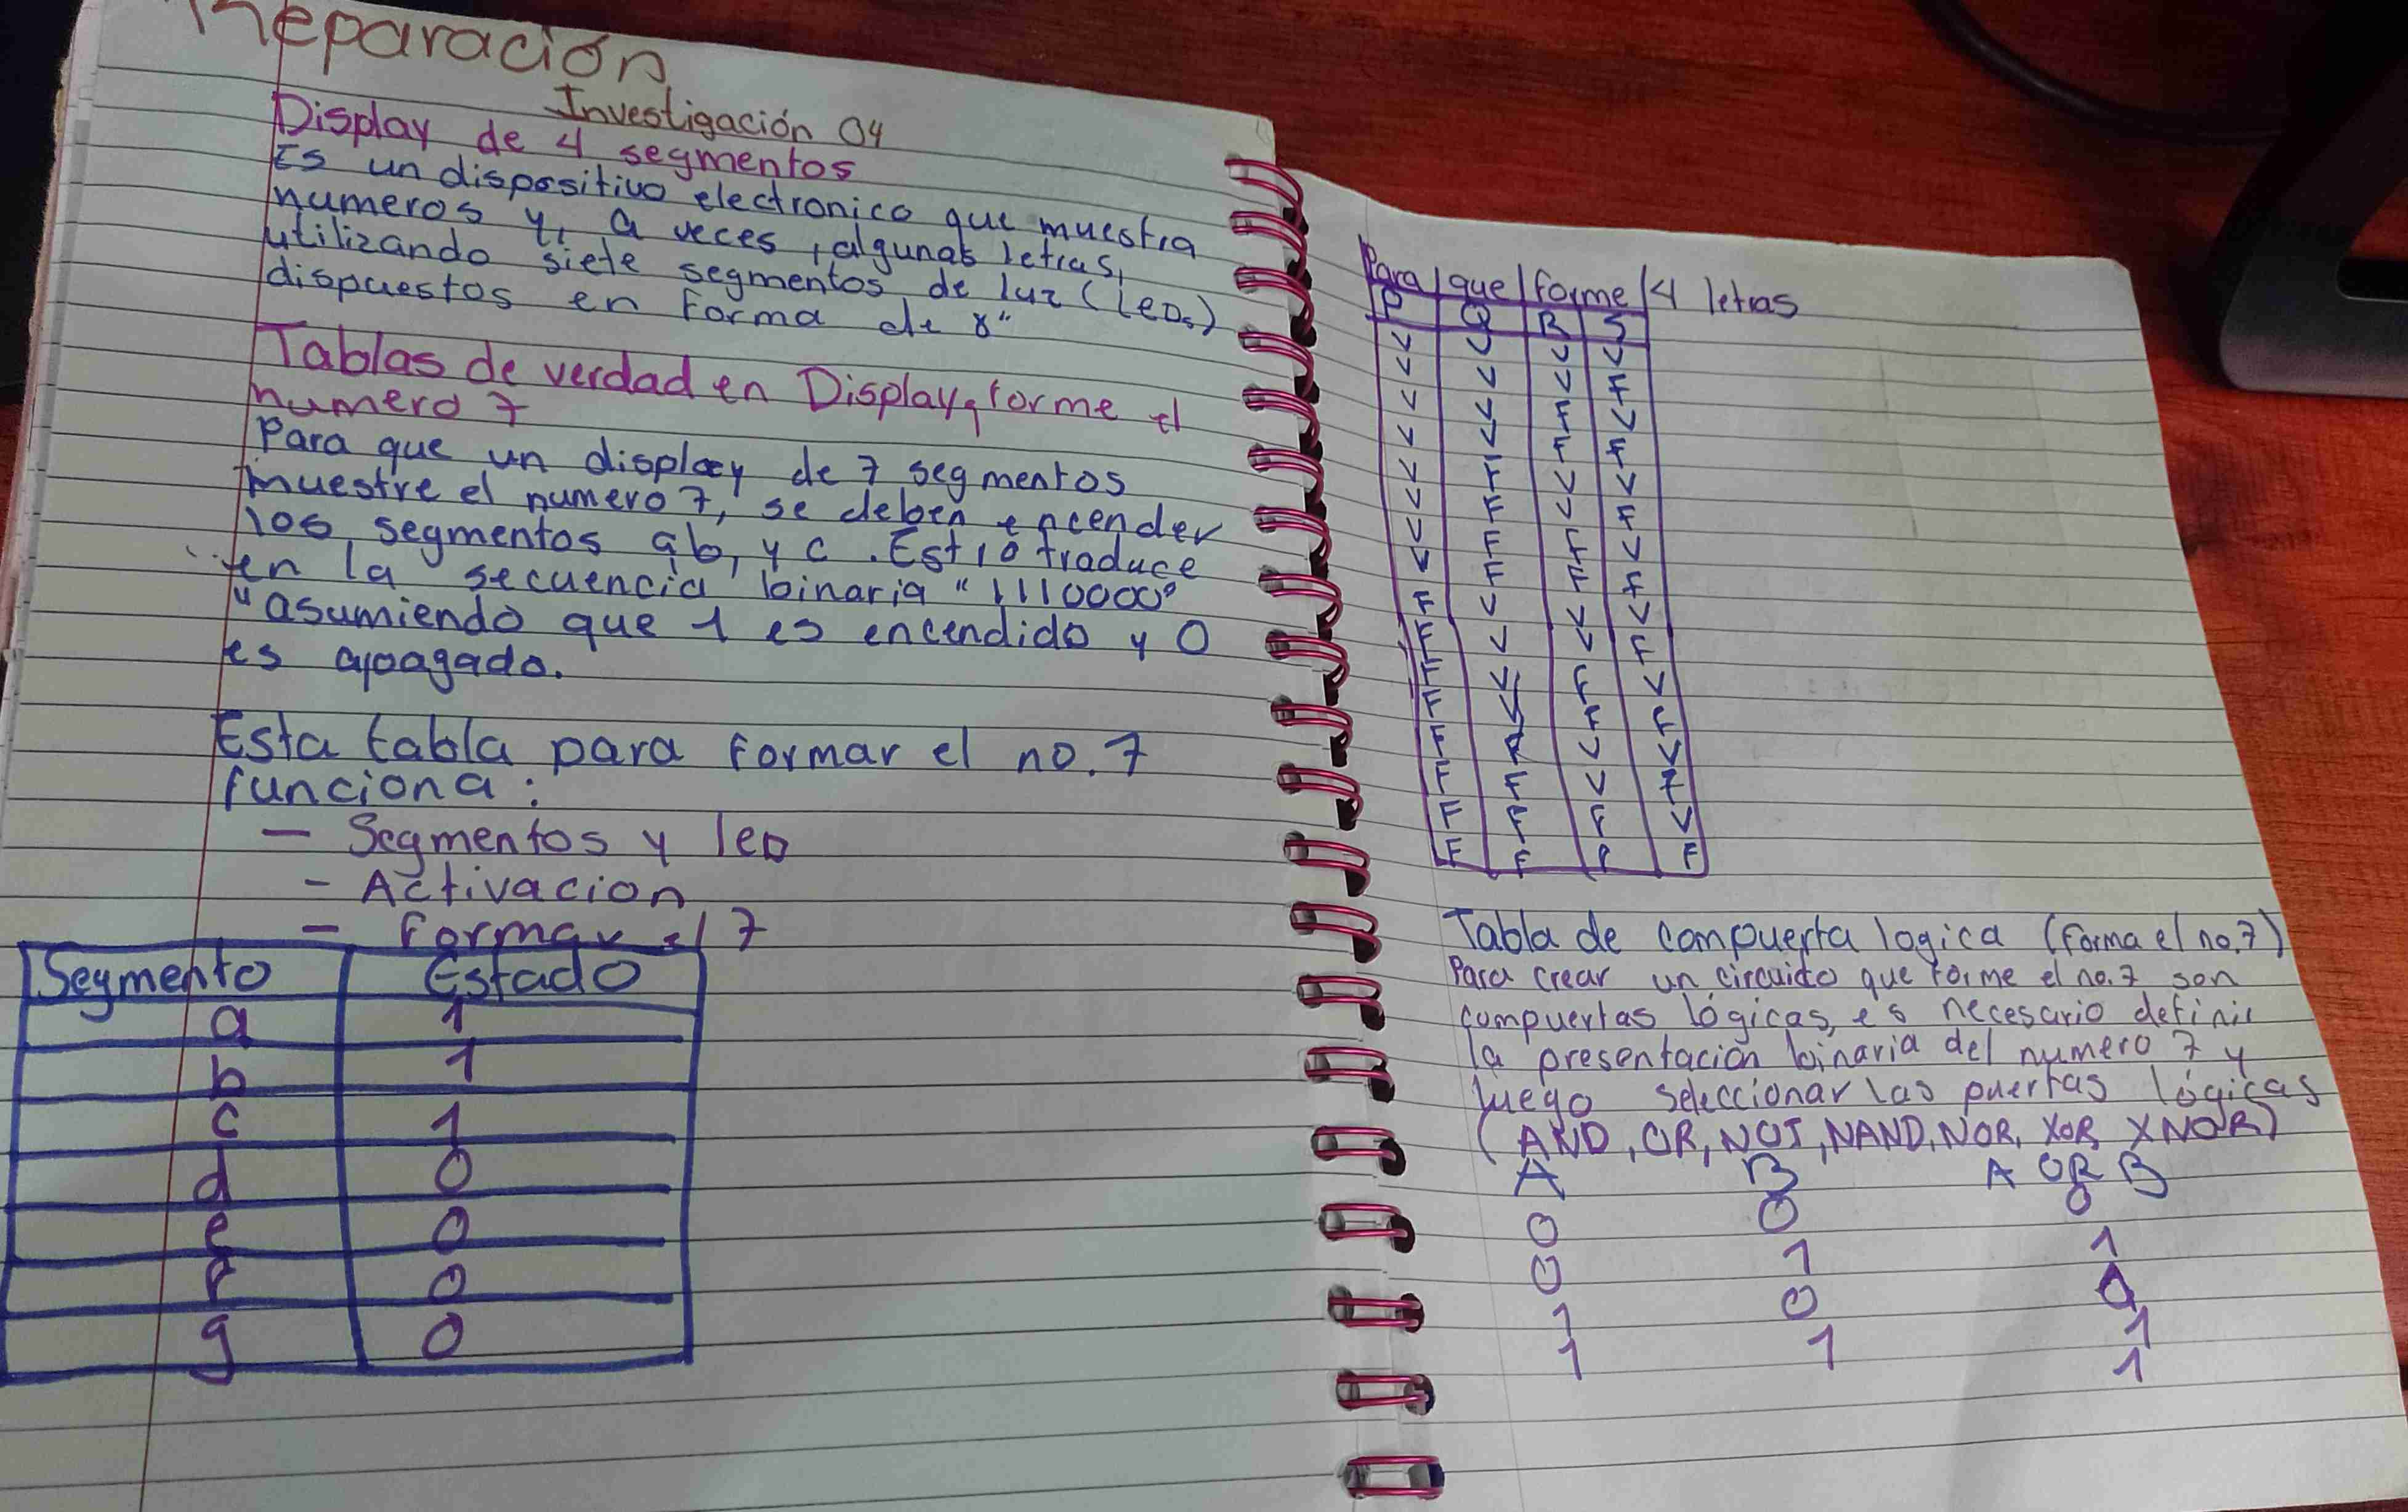 Reparación
Investigación 04
Display de 4 segmentos
Es un dispositivo electronico que muestra
numeros y, a veces, algunas letras,
utilizando siete segmentos de luz (LEDs)
dispuestos en forma de 8"
Tablas de verdad en Display, forme el
numero 7
Para que un display de 7 segmentos
muestre el numero 7, se deben encender
los segmentos a, b, y c. Esto traduce
en la secuencia binaria "1110000"
"asumiendo que 1 es encendido y 0
es apagado.
Esta tabla para formar el no. 7
funciona:
— Segmentos y LED
- Activacion
— Formar el 7
Segmento Estado
a 1
b 1
c 1
d 0
e 0
f 0
g 0
Para que forme 4 letras
P Q R S
V V V V
V V V F
V V F V
V V F F
V F V V
V F V F
V F F V
V F F F
F V V V
F V V F
F V F V
F V F F
F F V V
F F V F
F F F V
F F F F
Tabla de compuerta logica (forma el no. 7)
Para crear un circuido que forme el no. 7 son
compuertas lógicas, es necesario definir
la presentación binaria del numero 7 y
luego seleccionar las puertas lógicas
(AND, OR, NOT, NAND, NOR, XOR, XNOR)
A B A OR B
0 0 0
0 1 1
1 0 0
1 1 1
1